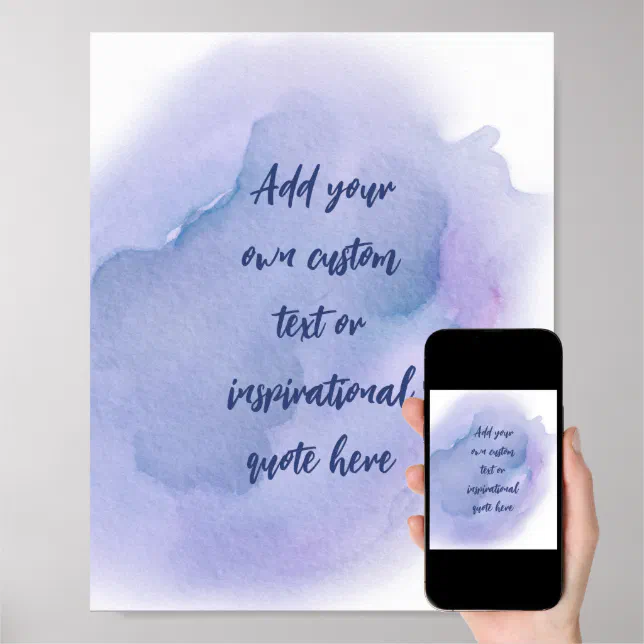 Add your
own custom
text or
inspirational
quote here
Add your
own custom
text or
inspirational
quote here